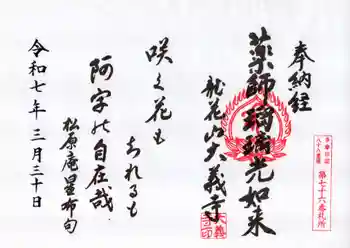 奉納経
薬師瑠璃光如来
龍花山大義寺
咲く花も
あれるも
阿字の自在哉
松原庵星布句
令和七年三月三十日
第七十六番札所